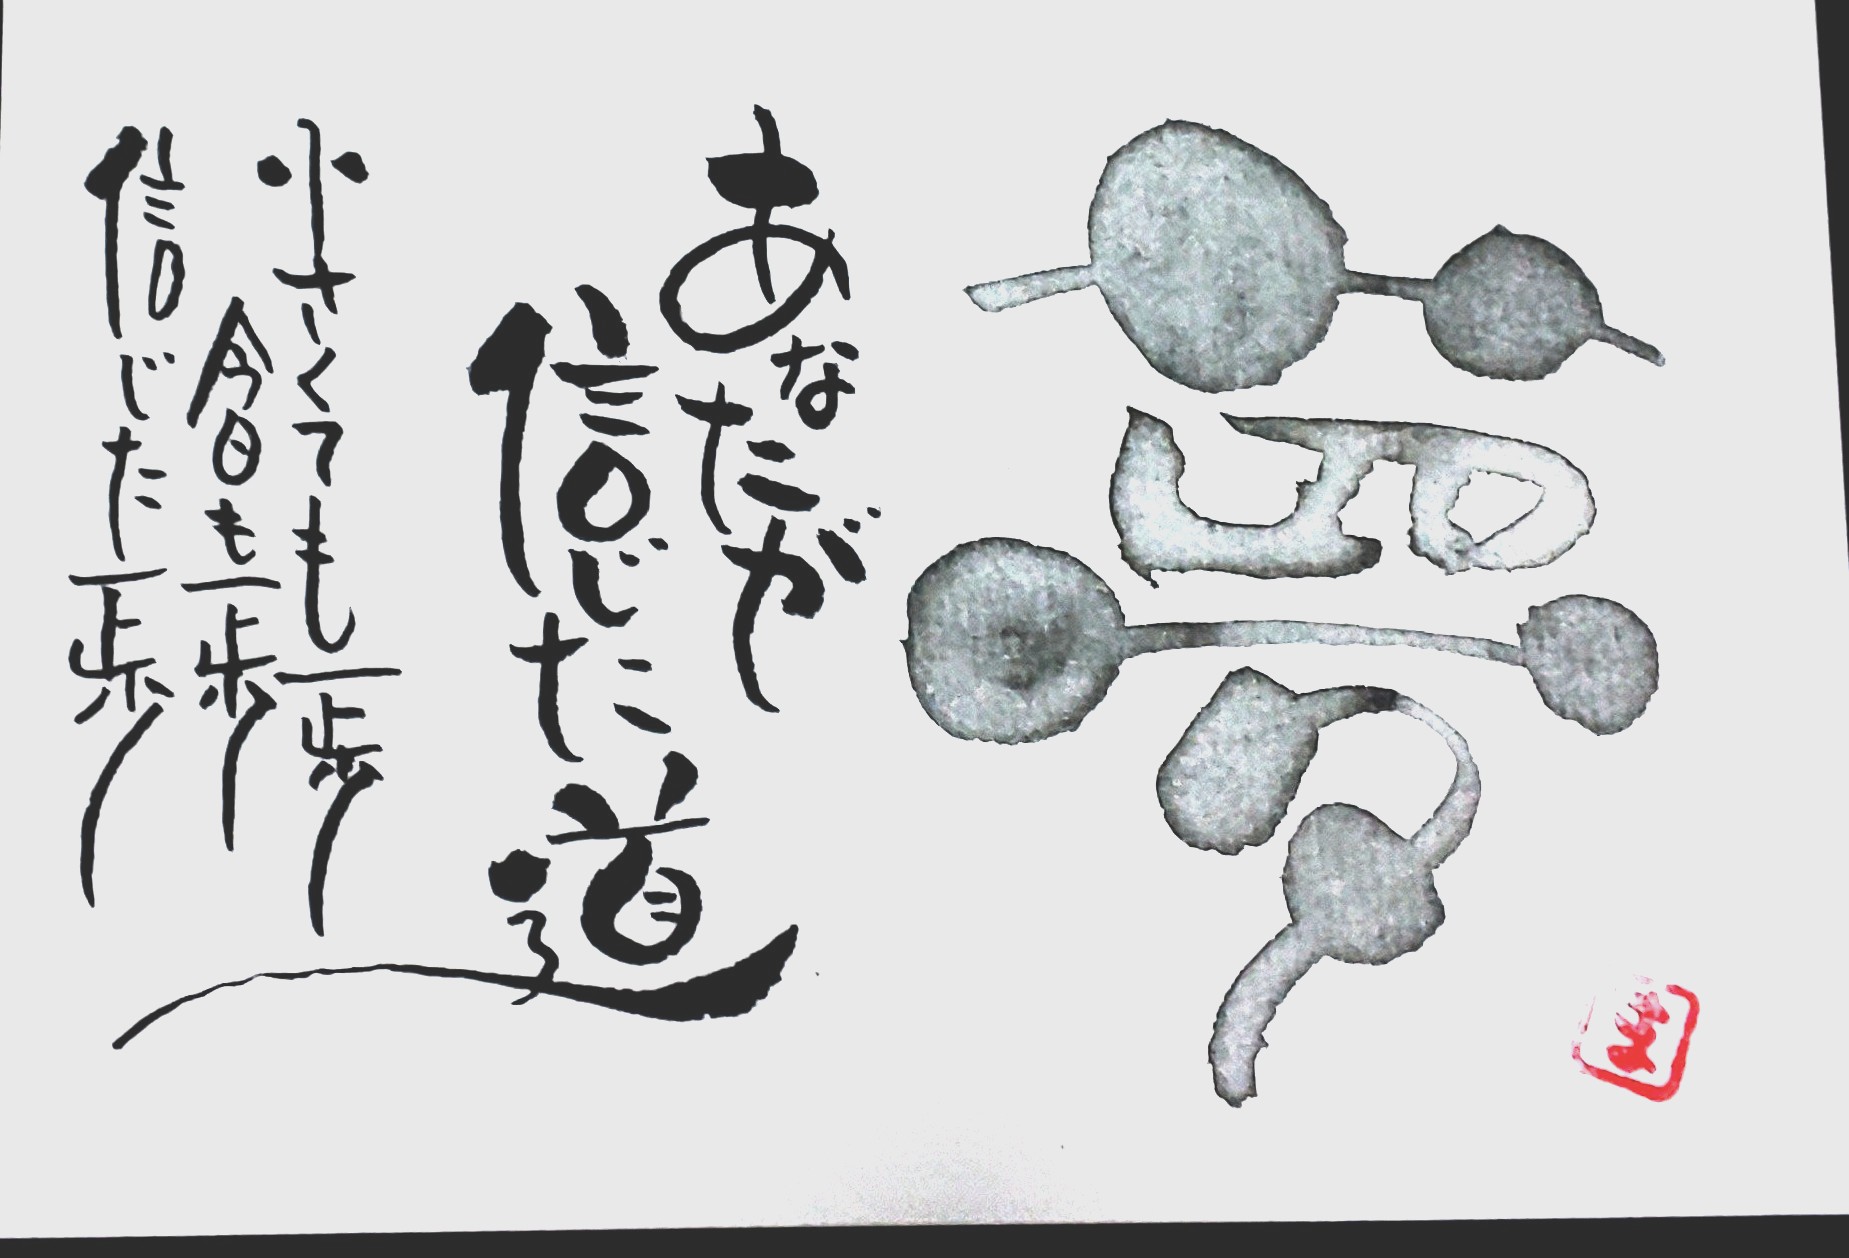 夢
あなたが
信じた道
小さくても一歩
今日も一歩
信じた一歩